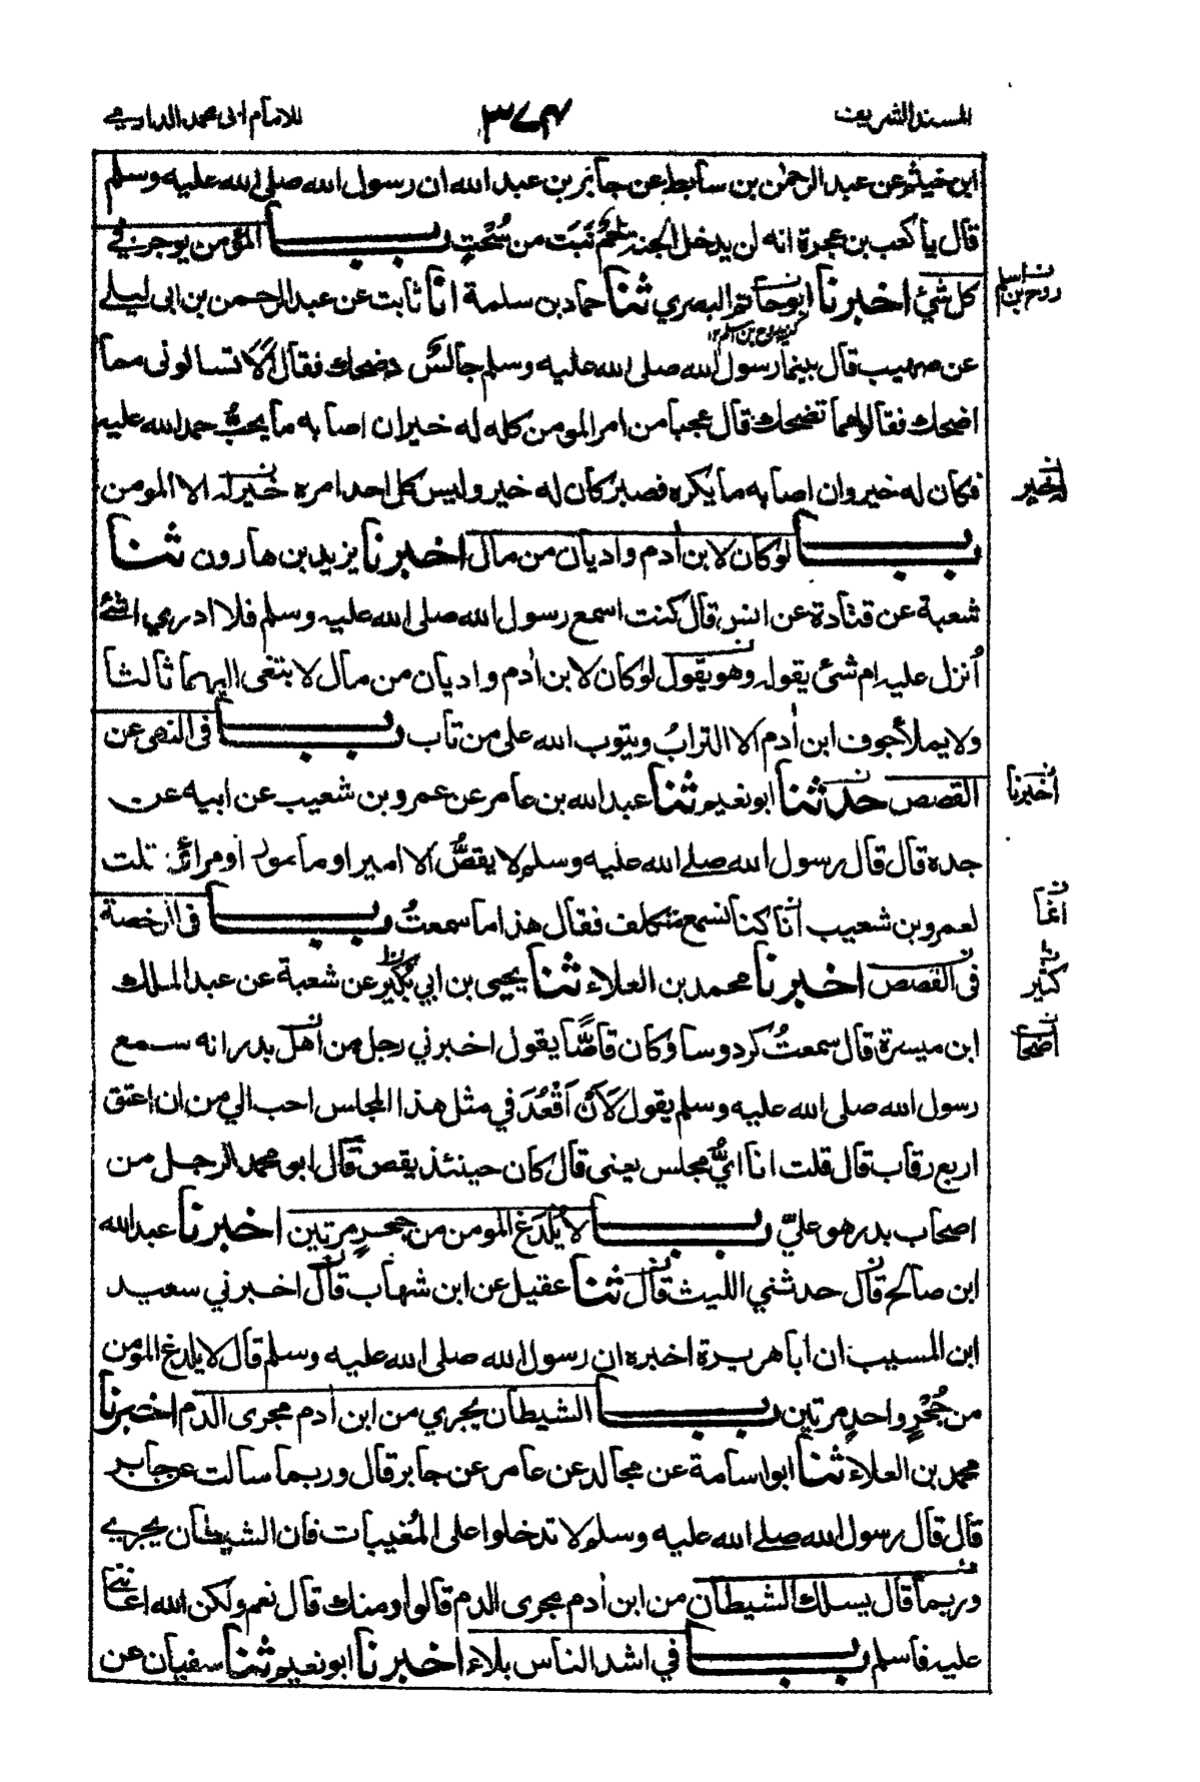 المسند الشريف
٣٧٤
للامام ابى محمد الدارمي
ابن خيثم عن عبد الرحمن بن سابط عن جابر بن عبد الله ان رسول الله صلى الله عليه وسلم
قال يا كعب بن عجرة انه لن يدخل الجنة لحمٌ نَبَت من سُحْتٍ باب المؤمن يوجر في
كل شئ اخبرنا ابو حاتم البصري ثنا حماد بن سلمة انا ثابت عن عبد الرحمن بن ابى ليلے
روح بن اسلم
كنيته روح بن اسلم ١٢
عن صهيب قال بينما رسول الله صلى الله عليه وسلم جالسٌ اذ ضحك فقال الا تسالونى مما
اضحك فقالوا مما تضحك قال عجبا من امر المومن كله له خير ان اصابه ما يحبُّ حمد الله عليه
فكان له خير وان اصابه ما يكره فصبر كان له خير وليس كل احد امره خير له الا المومن
باب لو كان لابن أدم واديان من مال اخبرنا يزيد بن هارون ثنا
شعبة عن قتادة عن انس قال كنت اسمع رسول الله صلى الله عليه وسلم فلا ادري اشئ
أُنزل عليه ام شئ يقوله وهو يقول لو كان لابن أدم واديان من مال لابتغى اليهما ثالثا
ولا يملأ جوف ابن أدم الا الترابُ ويتوب الله على من تاب باب فى النهى عن
القصص حدثنا ابو نعيم ثنا عبد الله بن عامر عن عمرو بن شعيب عن ابيه عن
أخبرنا
جده قال قال رسول الله صلے الله عليه وسلم لا يقصُّ الا امير او مامور او مرائٍ قلت
لعمرو بن شعيب انا كنا نسمع متكلف فقال هذا ما سمعتُ باب فى الرخصة
فى القصص اخبرنا محمد بن العلاء ثنا يحيى بن ابي بكير عن شعبة عن عبد الملك
كثير
ابن ميسرة قال سمعتُ كردوسا وكان قاصًّا يقول اخبرني رجل من أهل بدر انه سمع
اصحاب
رسول الله صلى الله عليه وسلم يقول لَاَنْ اَقْعُدَ في مثل هذا المجلس احب الي من ان اعتق
اربع رقاب قال قلت انا ايُّ مجلس يعنى قال كان حينئذ يقص قال ابو محمد الرجل من
اصحاب بدر هو عليّ باب لا يُلدَغ المومن من جحرٍ مرتين اخبرنا عبد الله
ابن صالح قال حدثني الليث قال ثنا عقيل عن ابن شهاب قال اخبرني سعيد
ابن المسيب ان ابا هريرة اخبره ان رسول الله صلى الله عليه وسلم قال لا يلدغ المومن
من جُحْرٍ واحدٍ مرتين باب الشيطان يجري من ابن أدم مجرى الدم اخبرنا
محمد بن العلاء ثنا ابو اسامة عن مجالد عن عامر عن جابر قال وربما سالت عن جابر
قال قال رسول الله صلے الله عليه وسلم لا تدخلوا على المُغيبات فان الشيطان يجري
وربما قال يسلك الشيطان من ابن أدم مجرى الدم قالوا ومنك قال نعم ولكن الله اعانني
عليه فاسلم باب في اشد الناس بلاء اخبرنا ابو نعيم ثنا سفيان عن